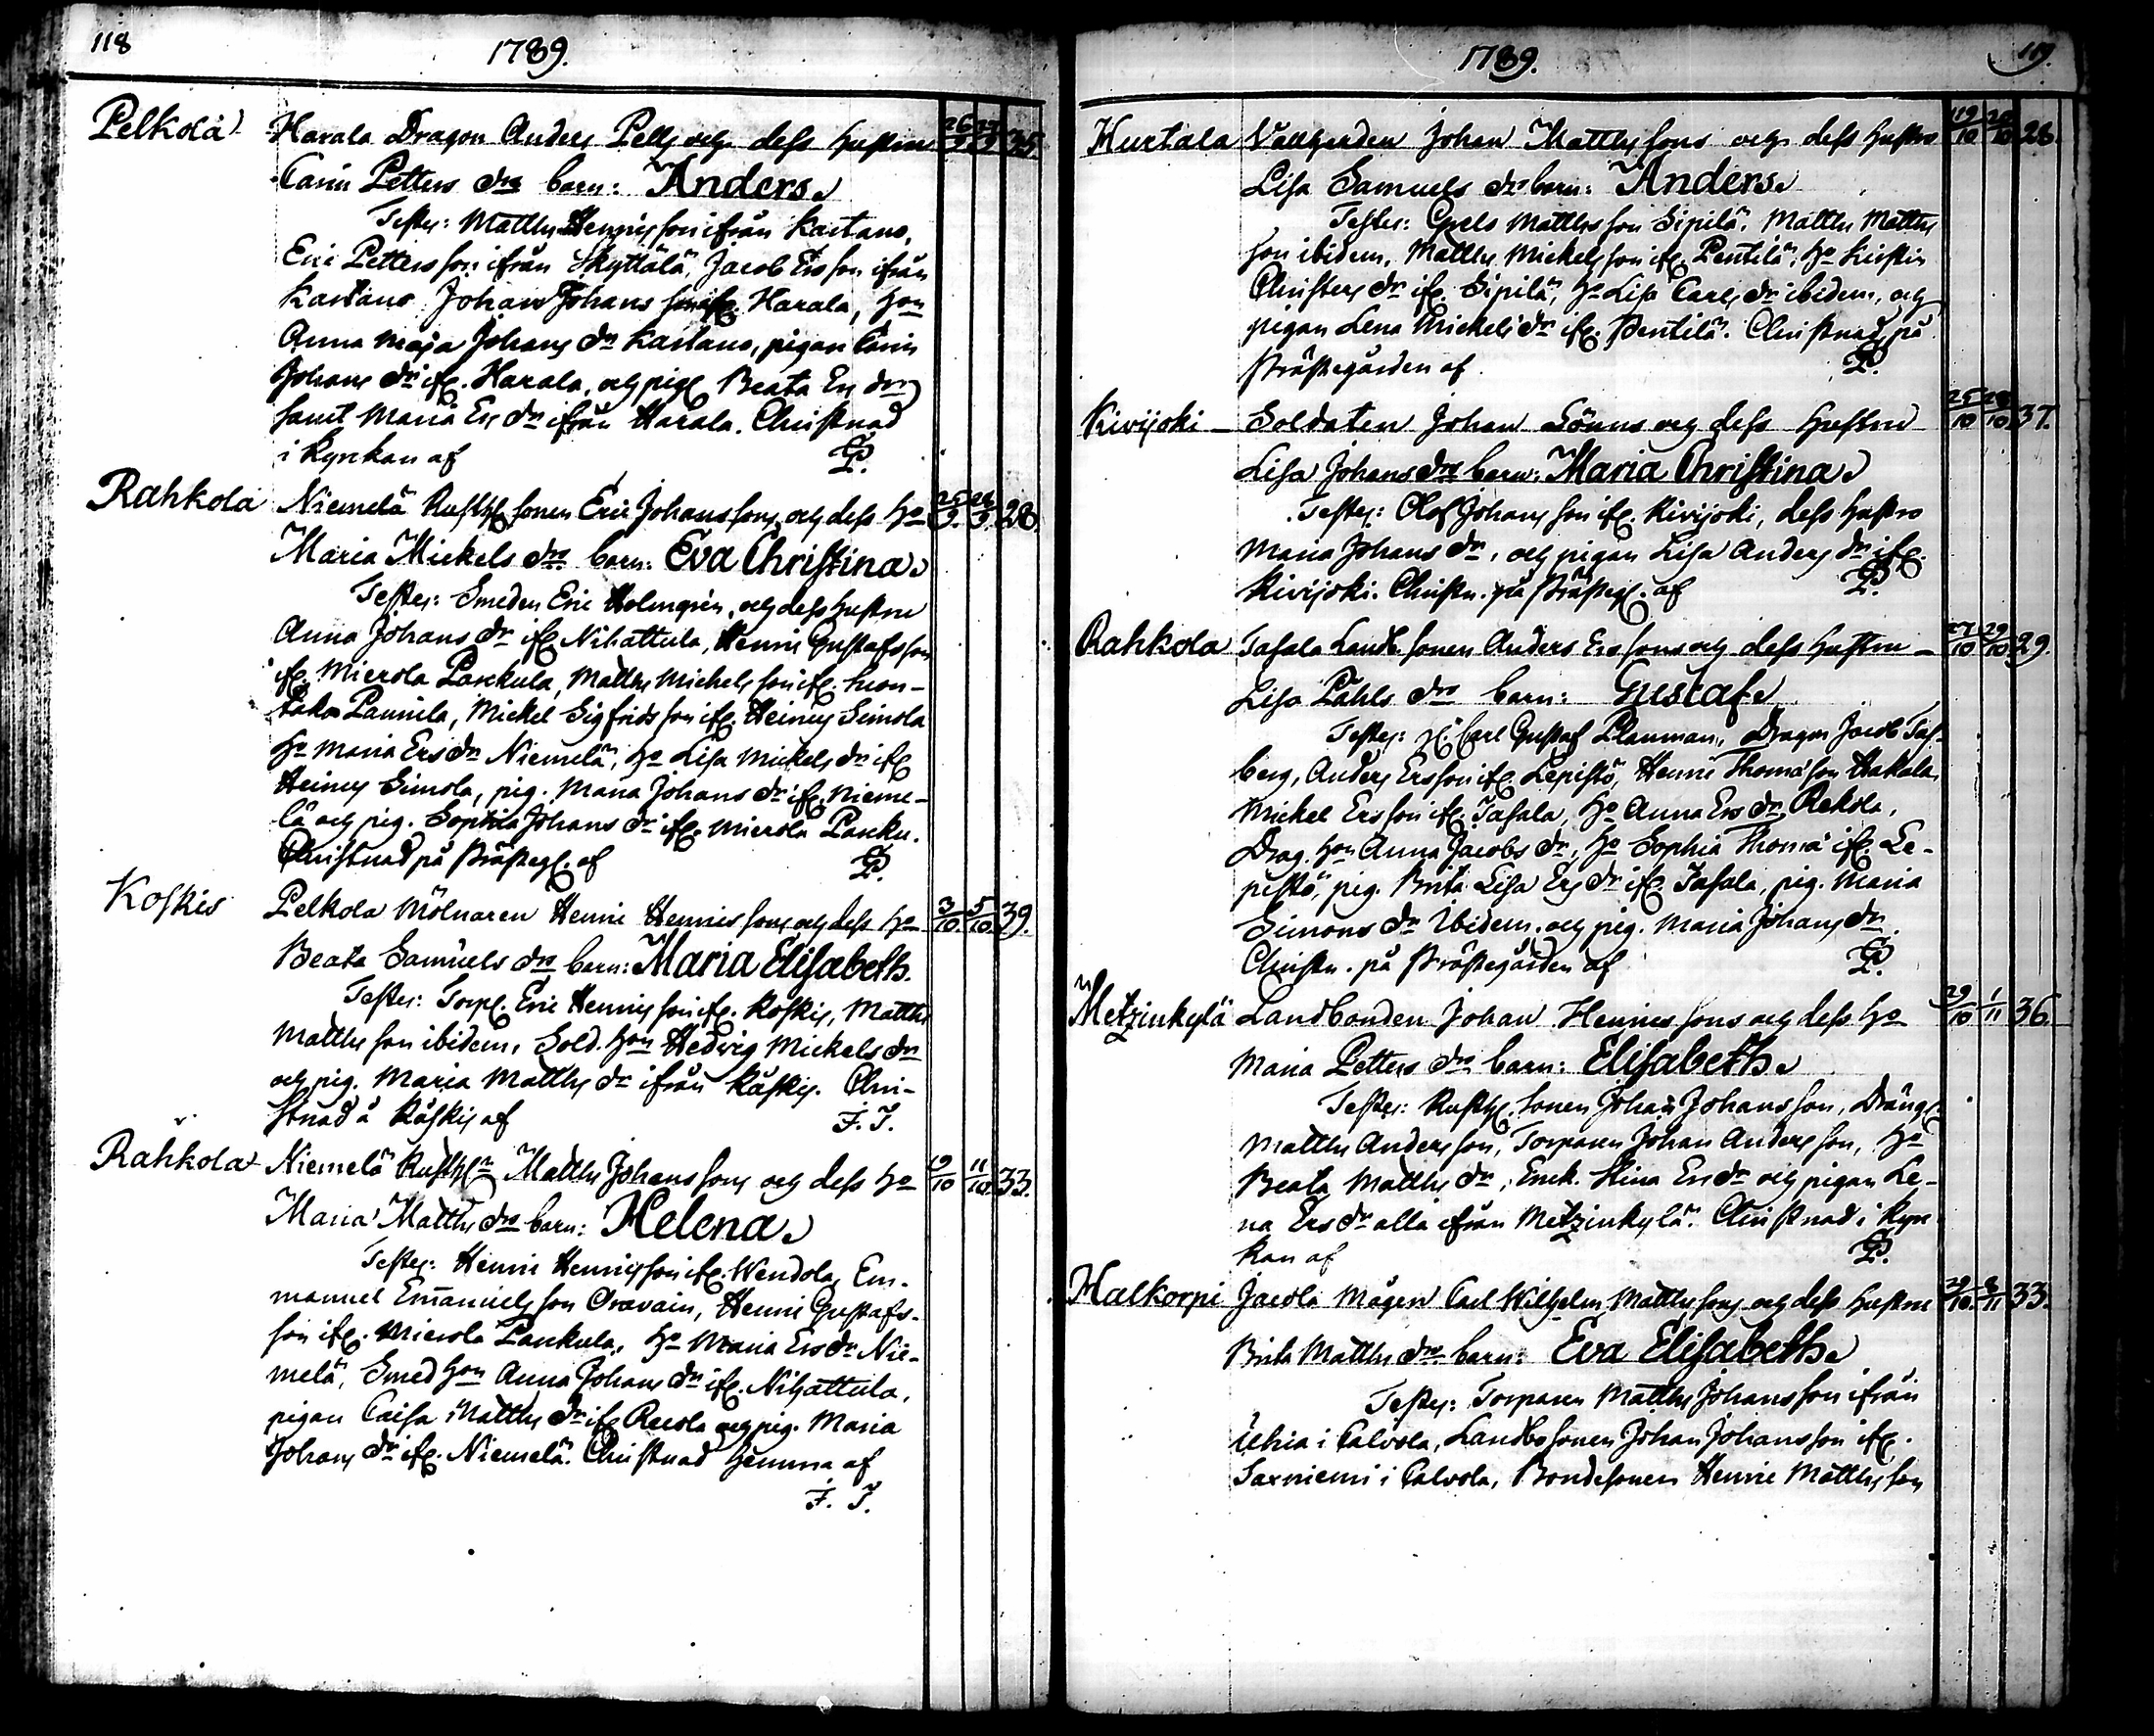 118
1789.
Pelkola Harala Dragon Anders Pells och dess hustru 26/9 27/9 35.
Carin Petters drs barn: Anders.
Testes: Matths Hennrs son ifrån Kaitano,
Eric Petters son ifrån Skyttälä, Jacob Ers son ifrån
Kaitano Johan Johans son ifr. Harala, hon
Anna Maja Johans dr Kaitano, pigan Carin
Johans dr ifr. Harala, och pig. Beata Ers dr
samt Maria Ers dr ifrån Harala. Christnad
i Kyrkan af P.
Rahkola Niemelä Rusth. sonen Eric Johans sons och dess ho 28.
Maria Mickels drs barn: Eva Christina.
Testes: Smeden Eric Holmgrén, och dess hustru
Anna Johans dr ifr. Nihattula, Henric Gustafs son
ifr. Mierola Pankula, Matths Michels son ifr.
Paunila, Mickel Sigfrids son ifr. Heinus Simola
ho Maria Ers dr Niemelä, ho Lisa Mickels dr ifr.
Heinus Simola, pig. Maria Johans dr ifr. Nieme-
lä och pig. Sophia Johans dr ifr. Mierola Panku.
Christnad på Prästeg. af P.
Koskis Pelkola Mölnaren Henric Henrics sons och dess ho 3/10 5/10 39.
Beata Samuels drs barn: Maria Elisabeth.
Testes: Torp. Eric Henrics son ifr. Koskis, Matths
Matths son ibidem, Sold. hon Hedvig Mickels dr
och pig. Maria Matths dr ifrån Kåskis. Chri-
stnad å Kåskis af F. T.
Rahkola Niemelä Rusth. Matths Johans sons och dess ho 11/10 33.
Maria Matths drs barn: Helena.
Testes: Henric Henrics son ifr. Wendola, Em-
manuel Emanuels son Oravain, Henric Gustafs-
son ifr. Mierola Pankula, ho Maria Ers dr Nie-
melä, Smed hon Anna Johans dr ifr. Nihattula,
pigan Caisa Matths dr ifr. och pig. Maria
Johans dr ifr. Niemelä. Christnad hemma af
F. T.
1789.
119.
Hurtala Vallherden Johan Matths sons och dess hustru 19/10 20/10 28.
Lisa Samuels drs barn: Anders.
Testes: Matths son Sipilä, Matths Matths
son ibidem, Matths Mickels son ifr. Pentilä, ho Kirstin
Christers dr ifr. Sipilä, ho Lisa Carls dr ibidem, och
pigan Lena Mickels dr ifr. Pentilä. Christnad på
Prästegården af P.
Kivijoki Soldaten Johan Lönns och dess hustru 25/10 28/10 37.
Lisa Johans drs barn: Maria Christina.
Testes: Olof Johans son ifr. Kivijoki, dess hustru
Maria Johans dr, och pigan Lisa Anders dr ifr.
Kivijoki. Christn. på Prästeg. af P.
Rahkola Tasala Landb. sonen Anders Ers sons och dess hustru 27/10 29/10 29.
Lisa Påhls drs barn: Gustaf.
Testes: H. Carl Gustaf Planman, Dragon Jacob Tas-
berg, Anders Ers son ifr. Lepistö, Henric Thomæ son Hakala,
Mickel Ers son ifr. Tasala, ho Anna Ers dr Rekola,
Drag. hon Anna Jacobs dr, ho Sophia Thomæ ifr. Le-
pistö, pig. Brita Lisa Ers dr ifr. Tasala, pig. Maria
Simons dr ibidem, och pig. Maria Johans dr.
Christn. på Prästegården af P.
Metzinkylä Landbonden Johan Henrics sons och dess ho 29/10 1/11 36.
Maria Petters drs barn: Elisabeth.
Testes: Rusth. sonen Johan Johans son, Dräng.
Matths Anders son, Torparen Johan Anders son, ho
Beata Matths dr, Enck. Stina Ers dr och pigan Le-
na Ers dr alla ifrån Metzinkylä. Christnad i Kyr-
kan af P.
Halkorpi Jacola Mågen Carl Wilhelm Matths sons och dess hustru 29/10 8/11 33.
Brita Matths drs barn: Eva Elisabeth.
Testes: Torparen Matths Johans son ifrån
i Calvola, Landbo sonen Johan Johans son ifr.
Sarniemi i Calvola, Bondesonen Henric Matths son